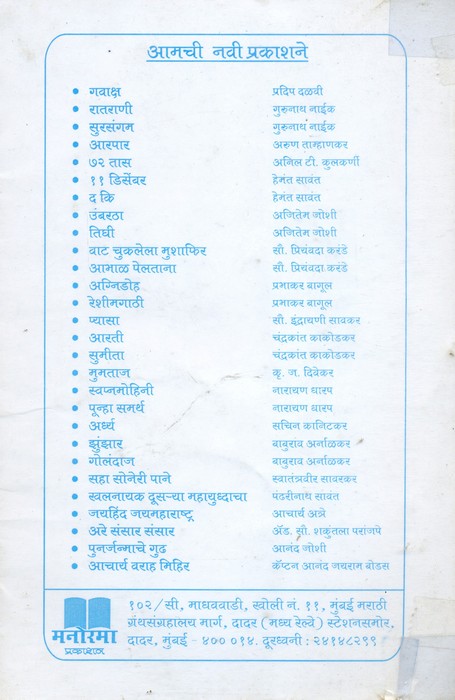 आमची नवी प्रकाशने
• गवाक्ष प्रदिप दळवी
• रातराणी गुरुनाथ नाईक
• सुरसंगम गुरुनाथ नाईक
• आरपार अरुण ताम्हाणकर
• ७२ तास अनिल टी. कुलकर्णी
• ११ डिसेंबर हेमंत सावंत
• द कि हेमंत सावंत
• उंबरठा अजितेम जोशी
• तिघी अजितेम जोशी
• वाट चुकलेला मुशाफिर सौ. प्रियंवदा करंडे
• आभाळ पेलताना सौ. प्रियंवदा करंडे
• अग्निडोह प्रभाकर बागूल
• रेशीमगाठी प्रभाकर बागूल
• प्यासा सौ. इंद्रायणी सावकर
• आरती चंद्रकांत काकोडकर
• सुमीता चंद्रकांत काकोडकर
• मुमताज कृ. ज. दिवेकर
• स्वप्नमोहिनी नारायण धारप
• पून्हा समर्थ नारायण धारप
• अर्ध्य सचिन कानिटकर
• झुंझार बाबुराव अर्नाळकर
• गोलंदाज बाबुराव अर्नाळकर
• सहा सोनेरी पाने स्वातंत्र्यवीर सावरकर
• खलनायक दूसऱ्या महायुध्दाचा पंढरीनाथ सावंत
• जयहिंद जयमहाराष्ट्र आचार्य अत्रे
• अरे संसार संसार अ‍ॅड. सौ. शकुंतला परांजपे
• पुनर्जन्माचे गुढ आनंद जोशी
• आचार्य वराह मिहिर कॅप्टन आनंद जयराम बोडस
मनोरमा
प्रकाशन
१०२/सी, माधववाडी, खोली नं. ११, मुंबई मराठी
ग्रंथसंग्रहालय मार्ग, दादर (मध्य रेल्वे) स्टेशनसमोर,
दादर, मुंबई - ४०० ०१४. दूरध्वनी : २४१४८२९९